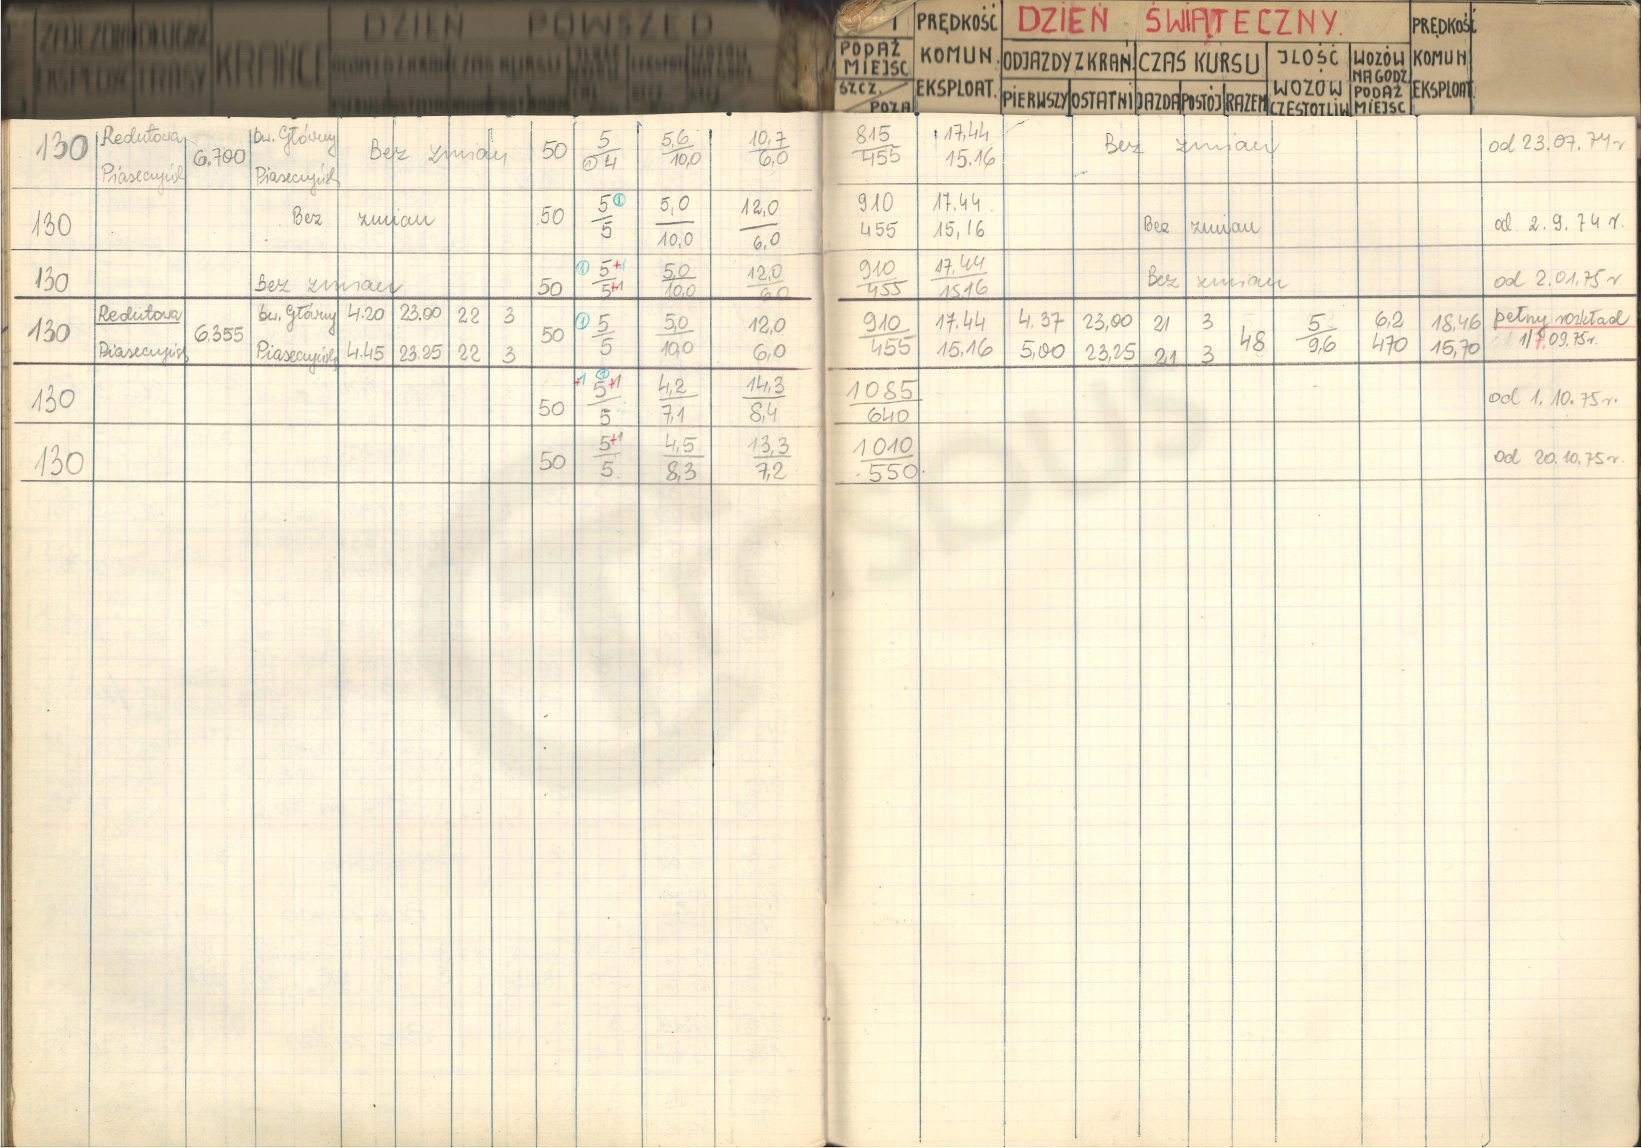 DZIEŃ POWSZED
KRAŃCE
PODAŻ MIEJSC
SZCZ. POZA
PRĘDKOŚĆ KOMUN. EKSPLOAT.
DZIEŃ ŚWIĄTECZNY.
ODJAZDY Z KRAŃ CZAS KURSU
PIERWSZY OSTATNI JAZDA POSTÓJ RAZEM
JLOŚĆ WOZÓW CZĘSTOTLIW
WOZÓW NA GODZ PODAŻ MIEJSC
PRĘDKOŚĆ KOMUN EKSPLOAT
130 Redutowa 6.700 Dw. Główny Bez zmian 50 5 5,6 10,7 815 17.44 Bez zmian od 23.07.74 r
Piaseczyńsk Piaseczyńsk ① 4 10,0 6,0 455 15.16
130 Bez zmian 50 5 ① 5,0 12,0 910 17.44 Bez zmian od 2.9.74 r.
5 10,0 6,0 455 15,16
130 Bez zmian 50 ① 5+1 5,0 12,0 910 17.44 Bez zmian od 2.01.75 r
5+1 10,0 6,0 455 15.16
130 Redutowa 6.355 Dw. Główny 4.20 23.00 22 3 50 ① 5 5,0 12,0 910 17.44 4.37 23,00 21 3 48 5 6,2 18,46 pełny rozkład
Piaseczyńsk Piaseczyńsk 4.45 23.25 22 3 5 10,0 6,0 455 15,16 5,00 23,25 21 3 9,6 470 15,70 1/7.09.75r.
130 50 +1 ① 5+1 4,2 14,3 1085 od 1.10.75 r.
5 7,1 8,4 640
130 50 5+1 4,5 13,3 1010 od 20.10.75 r.
5. 8,3 7,2 550